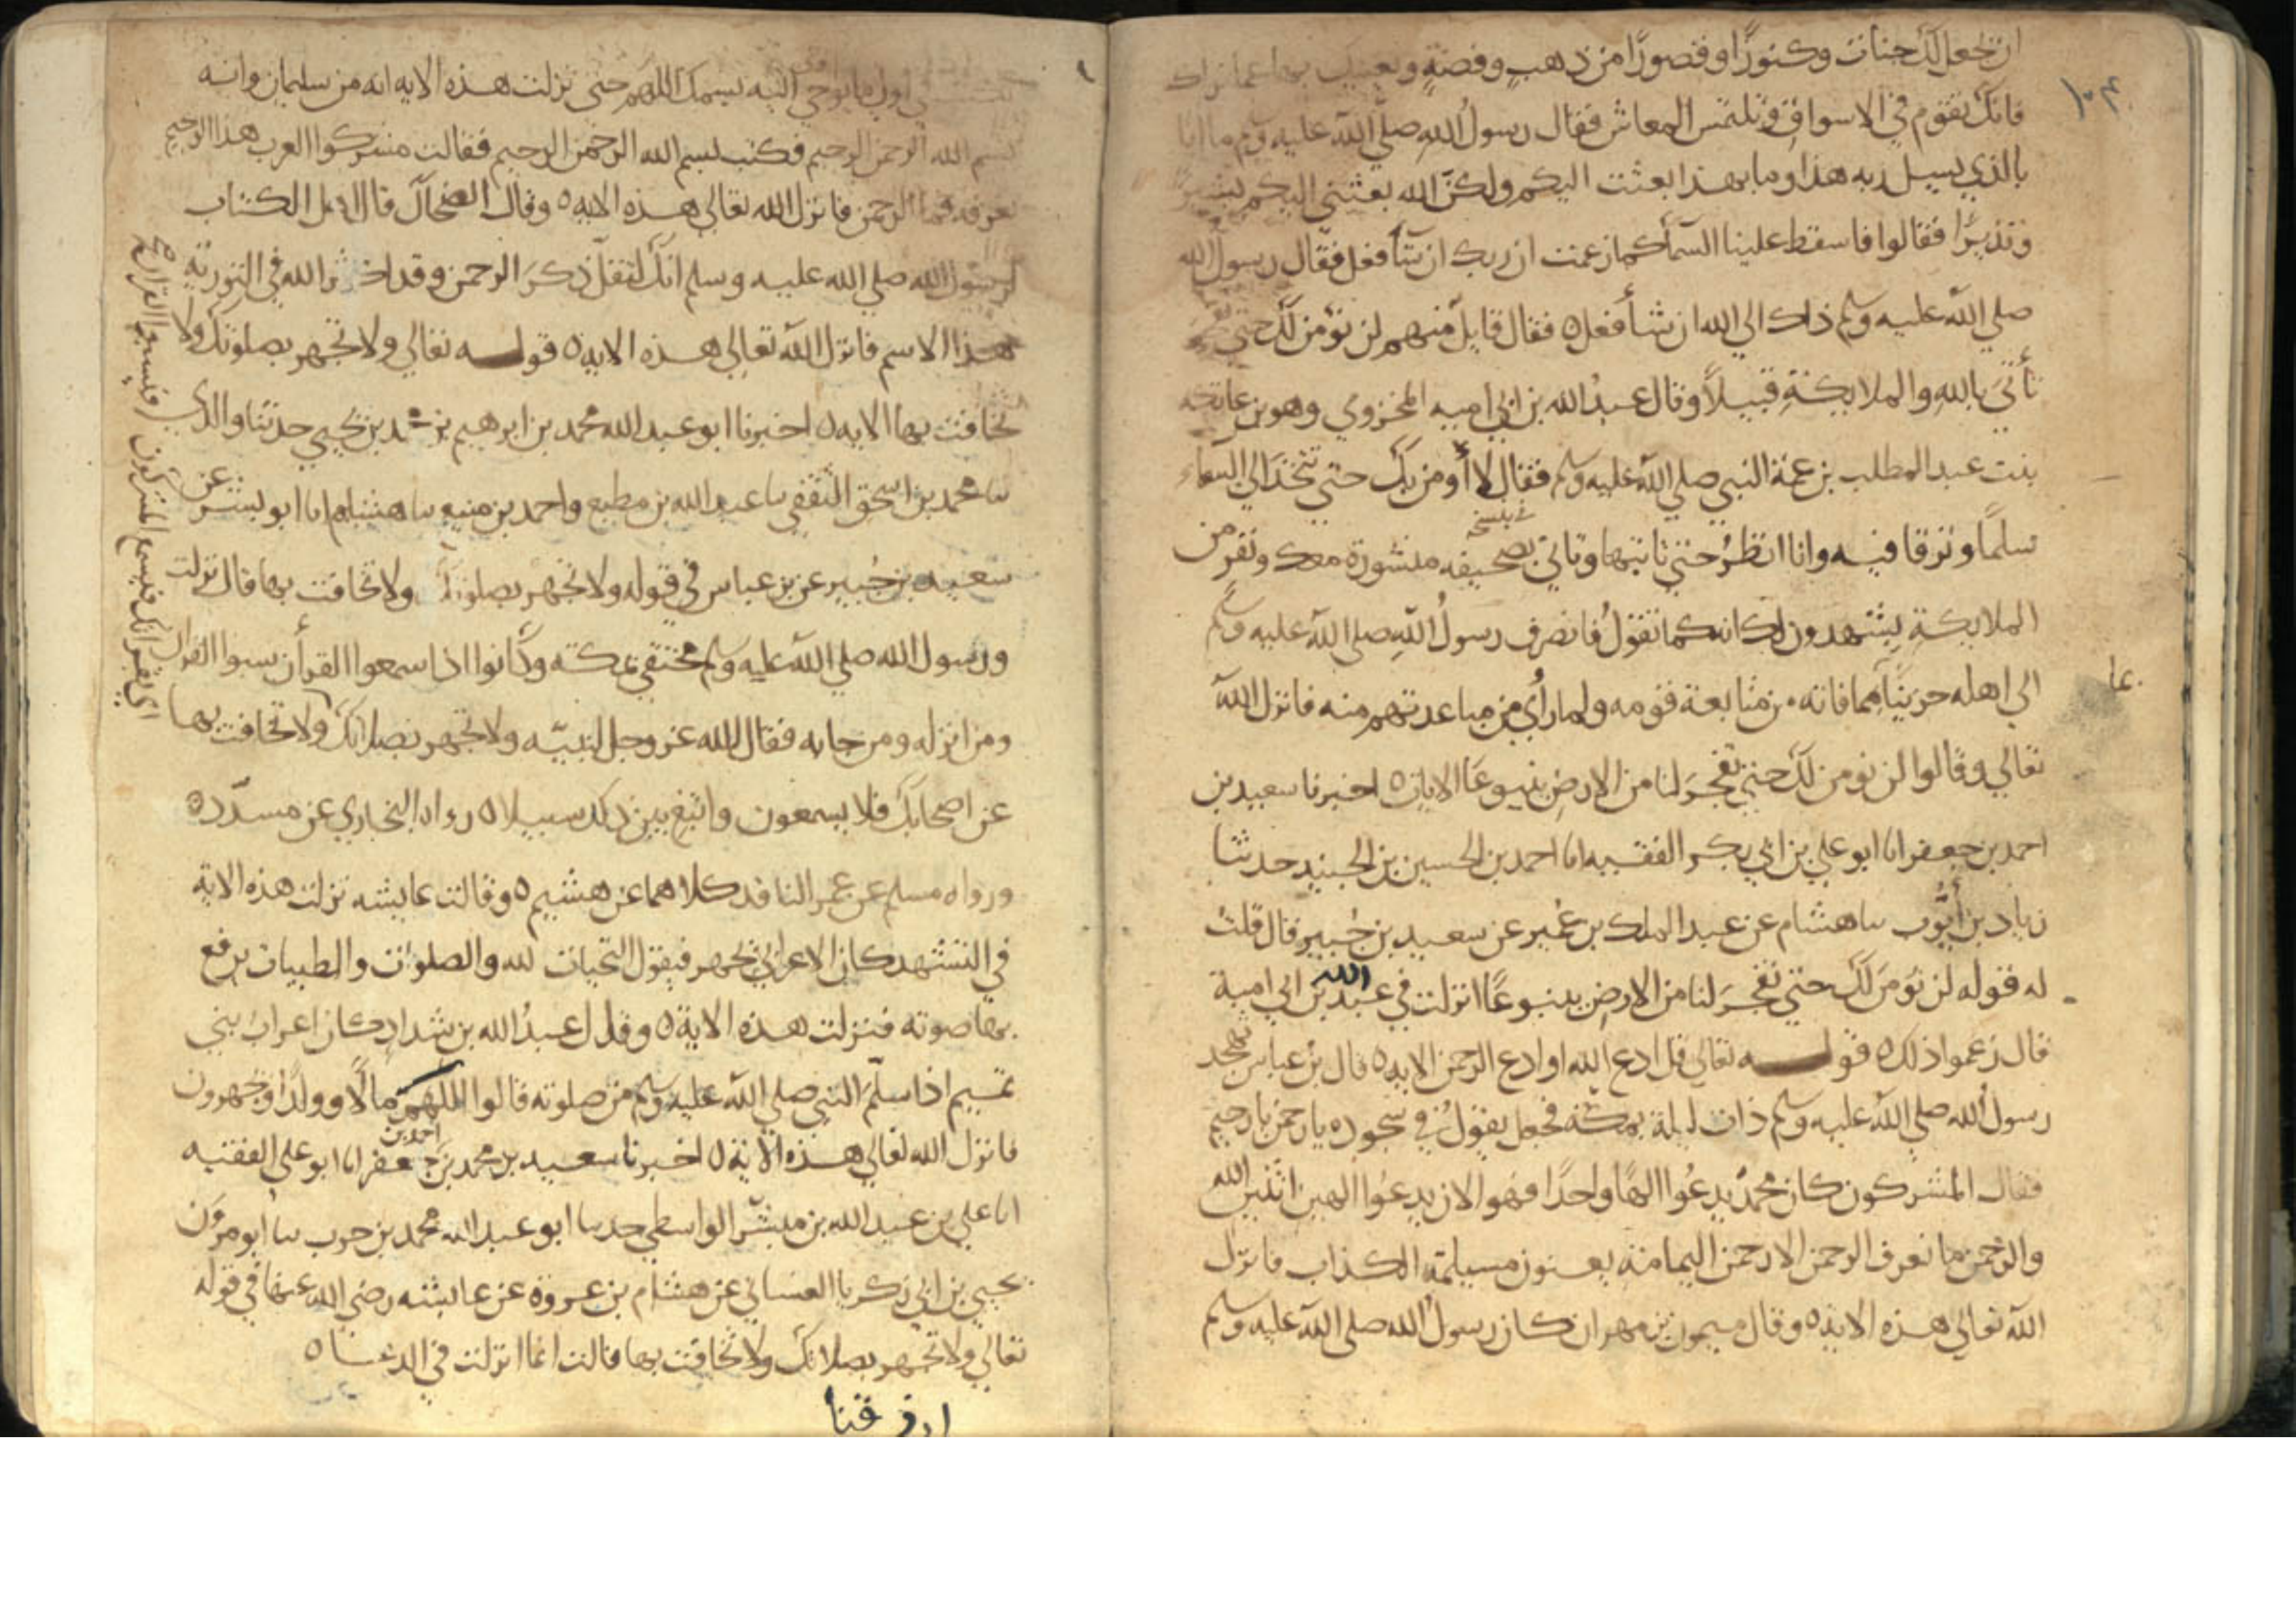 ان يجعل لك جنات وكنوزًا وقصورًا من ذهبٍ وفضةٍ ويغنيك بها عما نراك
فانك تقوم في الاسواق وتلتمس المعاش فقال رسولُ اللهِ صلي الله عليه وسلم ما انا
بالذي يسل ربه هذا وما بهذا بعثت اليكم ولكنَّ الله بعثني اليكم بشيرًا
ونذيرًا فقالوا فاسقط علينا السمآ كما زعمت ان ربك ان شآ فعل فقال رسول الله
صلي الله عليه وسلم ذلك الي الله ان شأ فعل ٥ فقال قايل منهم لن نؤمن لك حتي
تأتيَ بالله والملايكةِ قبيلاً وقال عبدُ الله بن ابي اميه المخزومي وهو بن عاتكه
بنت عبد المطلب بن عمة النبي صلي الله عليه وسلم فقال لا أومن بك حتي تتخذ الي السماء
سلمًا وترقا فيه وانا انظرُ حتي تاتيها وتاتي بصحيفه منشورة معك ونفر من
الملايكةِ يشهدون لك انه كما تقولُ فانصرف رسولُ اللهِ صلي الله عليه وسلم
الي اهله حزينًا مما فاته من متابعة قومه ولما رأي من مباعدتهم منه فانزل الله
تعالي وقالوا لن نومن لك حتي تفجر لنا من الارض ينبوعًا الايات ٥ اخبرنا سعيد بن
احمد بن جعفر انا ابو علي بن ابي بكر الفقيه انا احمد بن الحسين بن الجنيد حدثنا
زياد بن أيُّوب سا هشام عن عبد الملك بن عُمير عن سعيد بن جُبير قال قلتُ
له قوله لن نؤمن لك حتي تفجر لنا من الارض ينبوعًا انزلت في عبد الله بن ابي امية
قال زعموا ذلك ٥ قولـــه تعالي قل ادع الله او ادع الرحمن الايه ٥ قال بن عباس تهجد
رسول الله صلي الله عليه وسلم ذات ليلة بمكة فجعل يقولُ في سجوده يا رحمن يا رحيم
فقال المشركون كان محمدٌ يدعُوا الهًا واحدًا فهو الان يدعُوا الهين اثنين الله
والرحمن ما نعرف الرحمن الا رحمن اليمامة يعنون مسيلمة الكذاب فانزل
الله تعالي هذه الاية ٥ وقال ميمون بن مهران كان رسول الله صلي الله عليه وسلم
اول ما يوحي اليه بسمك اللهم حتي نزلت هذه الايه انه من سليمان وانه
بسم الله الرحمن الرحيم فكتب بسم الله الرحمن الرحيم فقالت مشركوا العرب هذا الرحيم
نعرفه فما الرحمن فانزل الله تعالي هذه الايه ٥ وقال الضحاك قال اهل الكتاب
لرسول الله صلي الله عليه وسلم انك لتقل ذكر الرحمن وقد اكثر الله في التورية
هذا الاسم فانزل الله تعالي هذه الايه ٥ قولـــه تعالي ولا تجهر بصلوتك ولا
تخافت بها الايه ٥ اخبرنا ابو عبد الله محمد بن ابرهيم بن محمد بن يحيي حدثنا والدي
سا محمد بن اسحق الثقفي سا عبد الله بن مطيع واحمد بن منيع سا هشام انا ابو بشر عن
سعيد بن جُبير عن بن عباس في قوله ولا تجهر بصلوتك ولا تخافت بها قال نزلت
ورسول الله صلي الله عليه وسلم مختفي بمكته وكانوا اذا سمعوا القرأن سبوا القرآن
ومن انزله ومن جا به فقال الله عز وجل لنبيّه ولا تجهر بصلاتك ولا تخافت بها
اي بقراتك فيسمع المشركون فيسبوا القرآن
عن اصحابك فلا يسمعون وابتغ بين ذلك سبيلا ٥ رواه البخاري عن مسدّد ٥
ورواه مسلم عن عمر الناقد كلاهما عن هشيم ٥ وقالت عايشه نزلت هذه الاية
في التشهد كان الاعرابي يجهر فيقول التحيات لله والصلوات والطيبات يرفع
بها صوته فنزلت هذه الاية ٥ وقال عبدُ الله بن شداد كان اعراب بني
تميم اذا سلّم النبي صلي الله عليه وسلم من صلوته قالوا اللهم مالًا وولدًا ويجهرون
فانزل الله تعالي هذه الاية ٥ اخبرنا سعيد بن محمد بن احمد بن جعفر انا ابو علي الفقيه
انا علي بن عبد الله بن مبشّر الواسطي حدسا ابو عبد الله محمد بن حرب سا ابو مرون
يحيي بن ابي زكريا الغساني عن هشام بن عروة عن عايشه رضي الله عنها في قوله
تعالي ولا تجهر بصلاتك ولا تخافت بها قالت انما انزلت في الدعا ٥